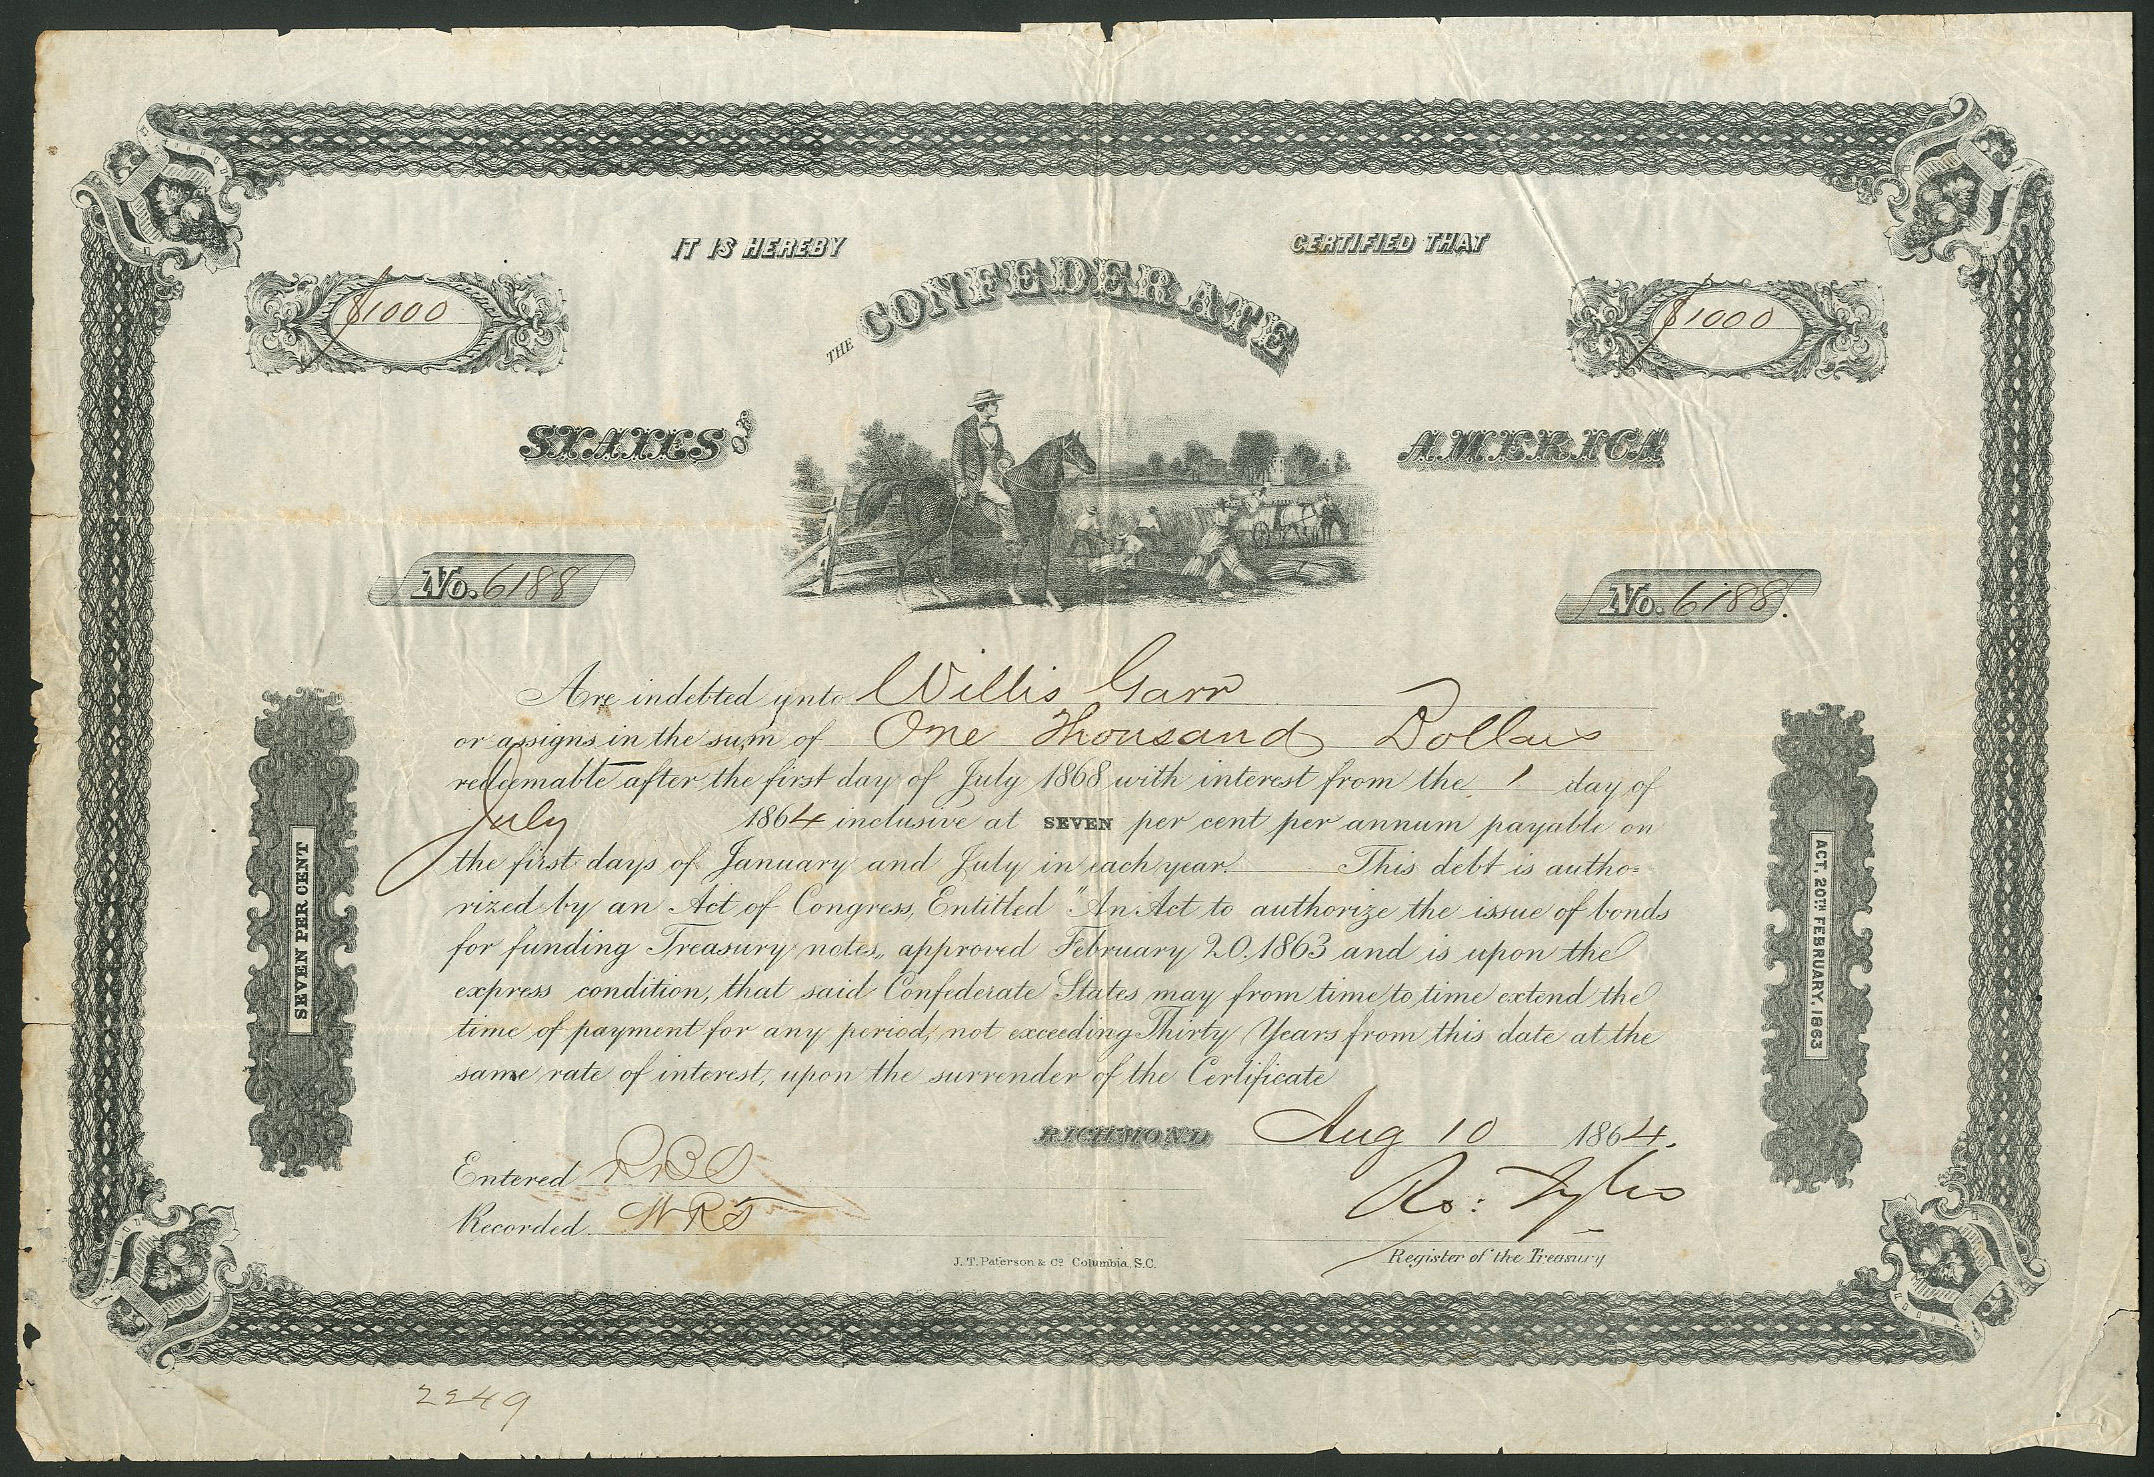 IT IS HEREBY CERTIFIED THAT
THE CONFEDERATE
$1000 $1000
STATES OF AMERICA
No. 6188 No. 6188.
Are indebted unto Willis Garr
or assigns in the sum of One Thousand Dollars
redeemable after the first day of July 1868 with interest from the 1 day of
July 1864 inclusive at SEVEN per cent per annum payable on
the first days of January and July in each year. This debt is autho=
rized by an Act of Congress, Entitled "An Act to authorize the issue of bonds
for funding Treasury notes,, approved February 20. 1863 and is upon the
express condition, that said Confederate States may from time to time extend the
time of payment for any period, not exceeding Thirty Years from this date at the
same rate of interest, upon the surrender of the Certificate
SEVEN PER CENT
ACT, 20TH FEBRUARY, 1863
RICHMOND Aug 10 1864.
Entered
Recorded
Ro: Tyler
Register of the Treasury
J. T. Paterson & Co Columbia, S.C.
2249